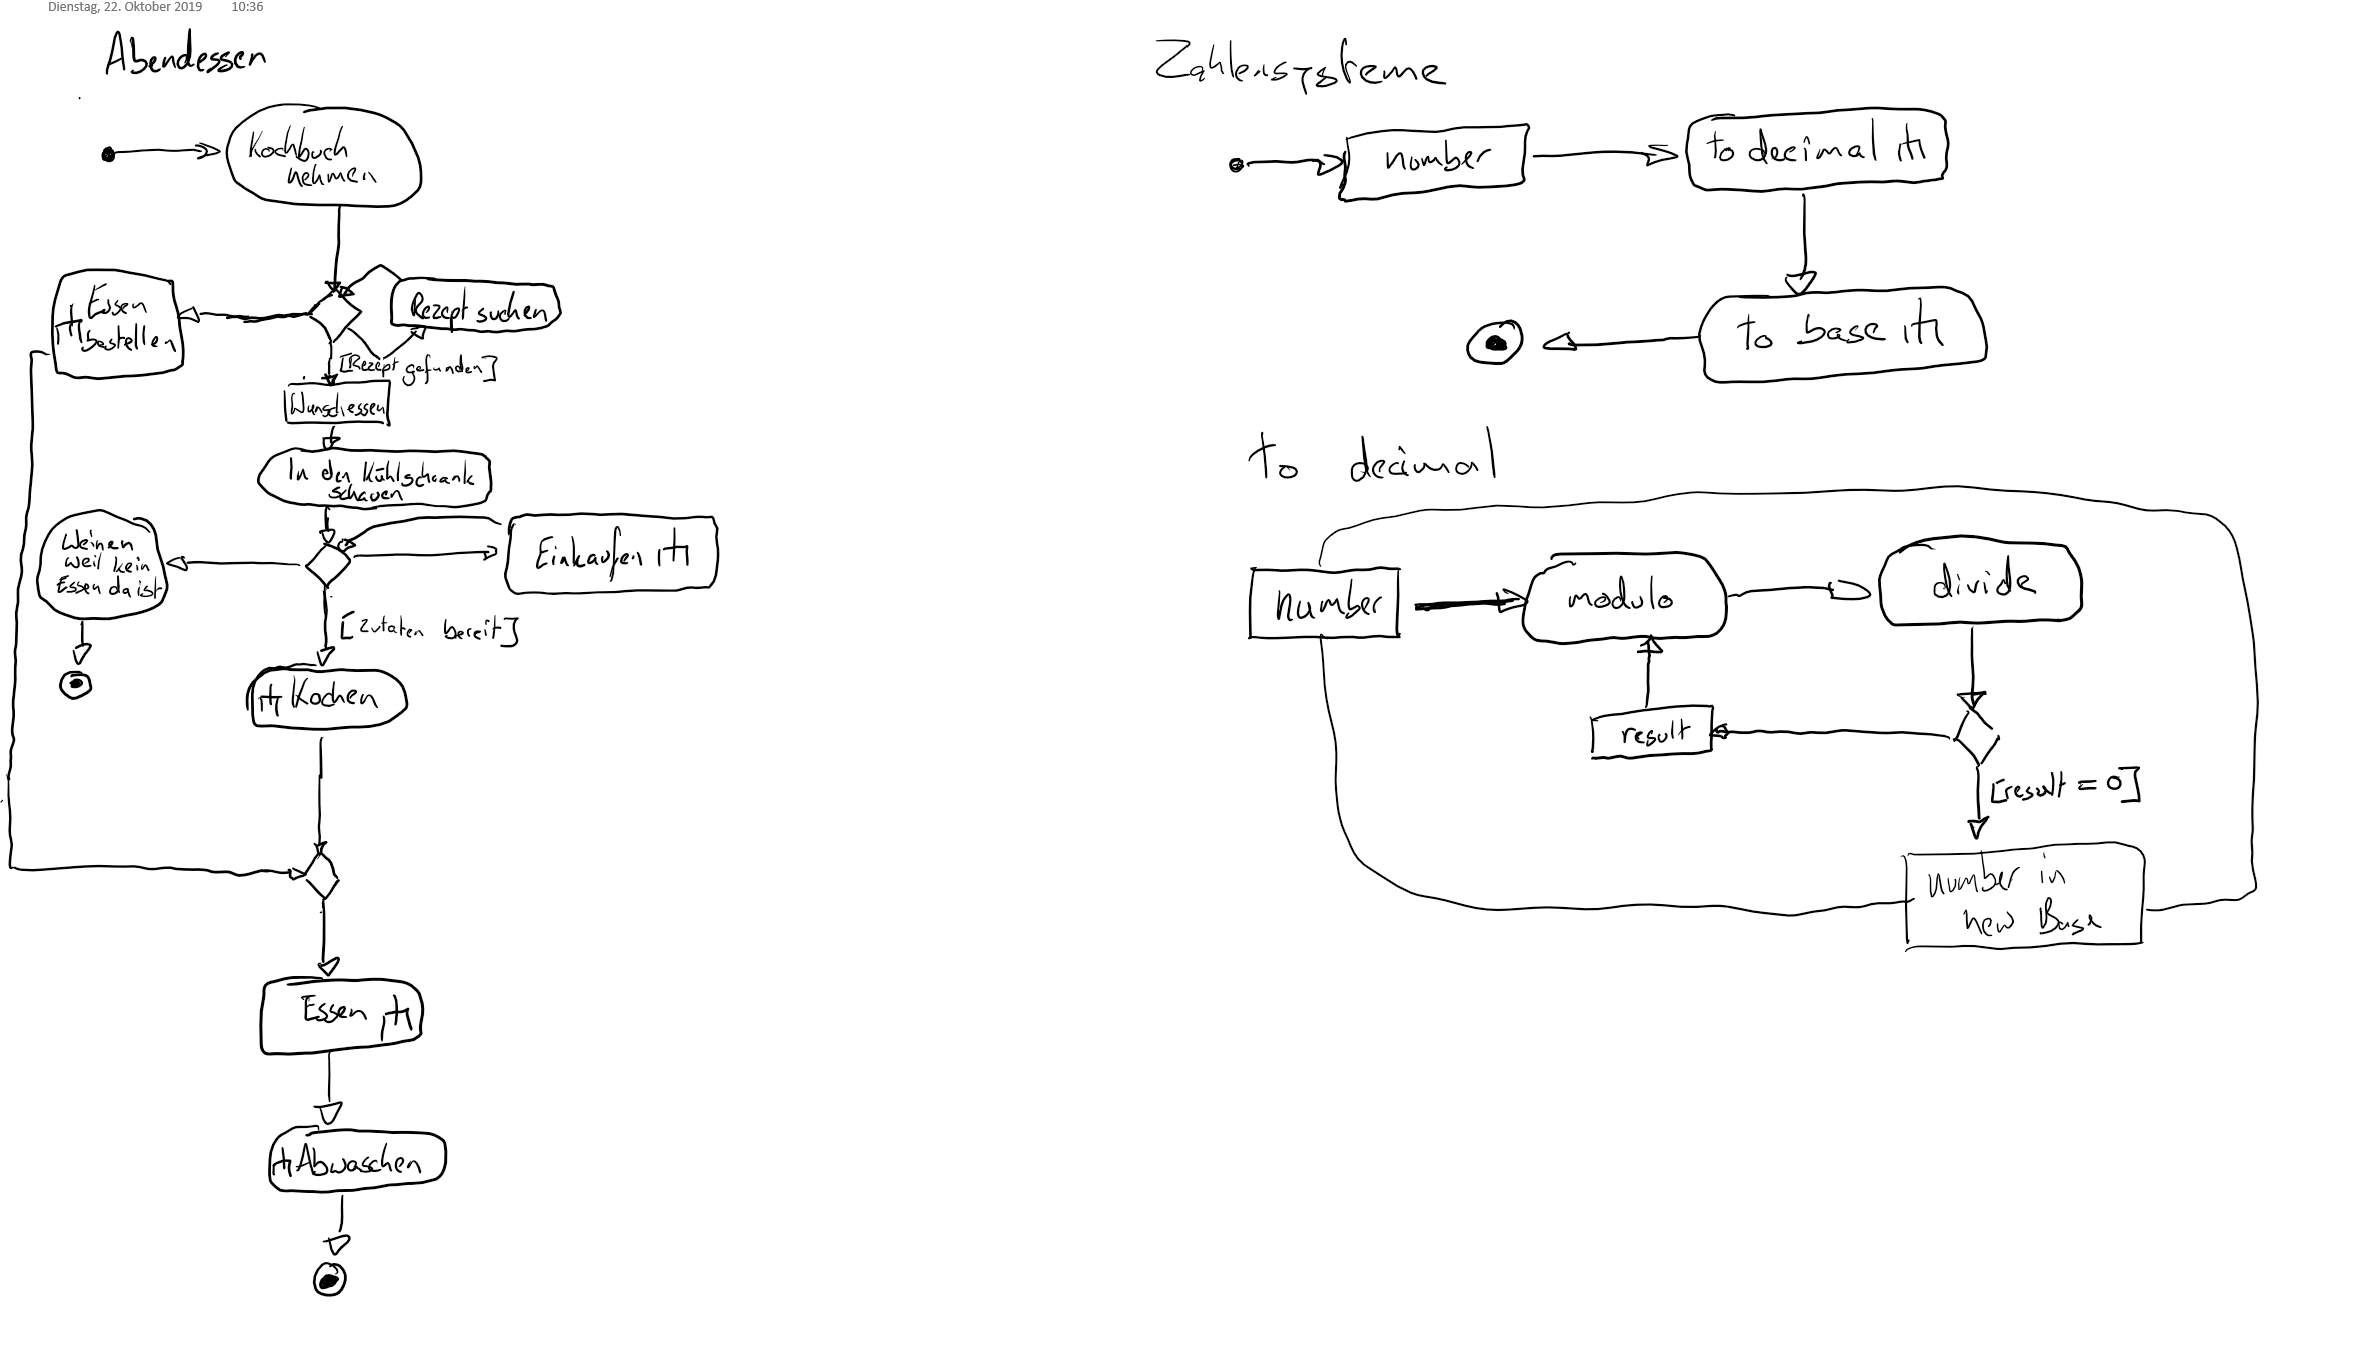 Dienstag, 22. Oktober 2019 10:36
Abendessen
Kochbuch
nehmen
Essen
bestellen
Rezept suchen
[Rezept gefunden]
Wunschessen
In den Kühlschrank
schauen
Weinen
weil kein
Essen da ist
Einkaufen
[Zutaten bereit]
Kochen
Essen
Abwaschen
Zahlensysteme
number
to decimal
to base
to decimal
number
modulo
divide
result
[result = 0]
number in
new Base